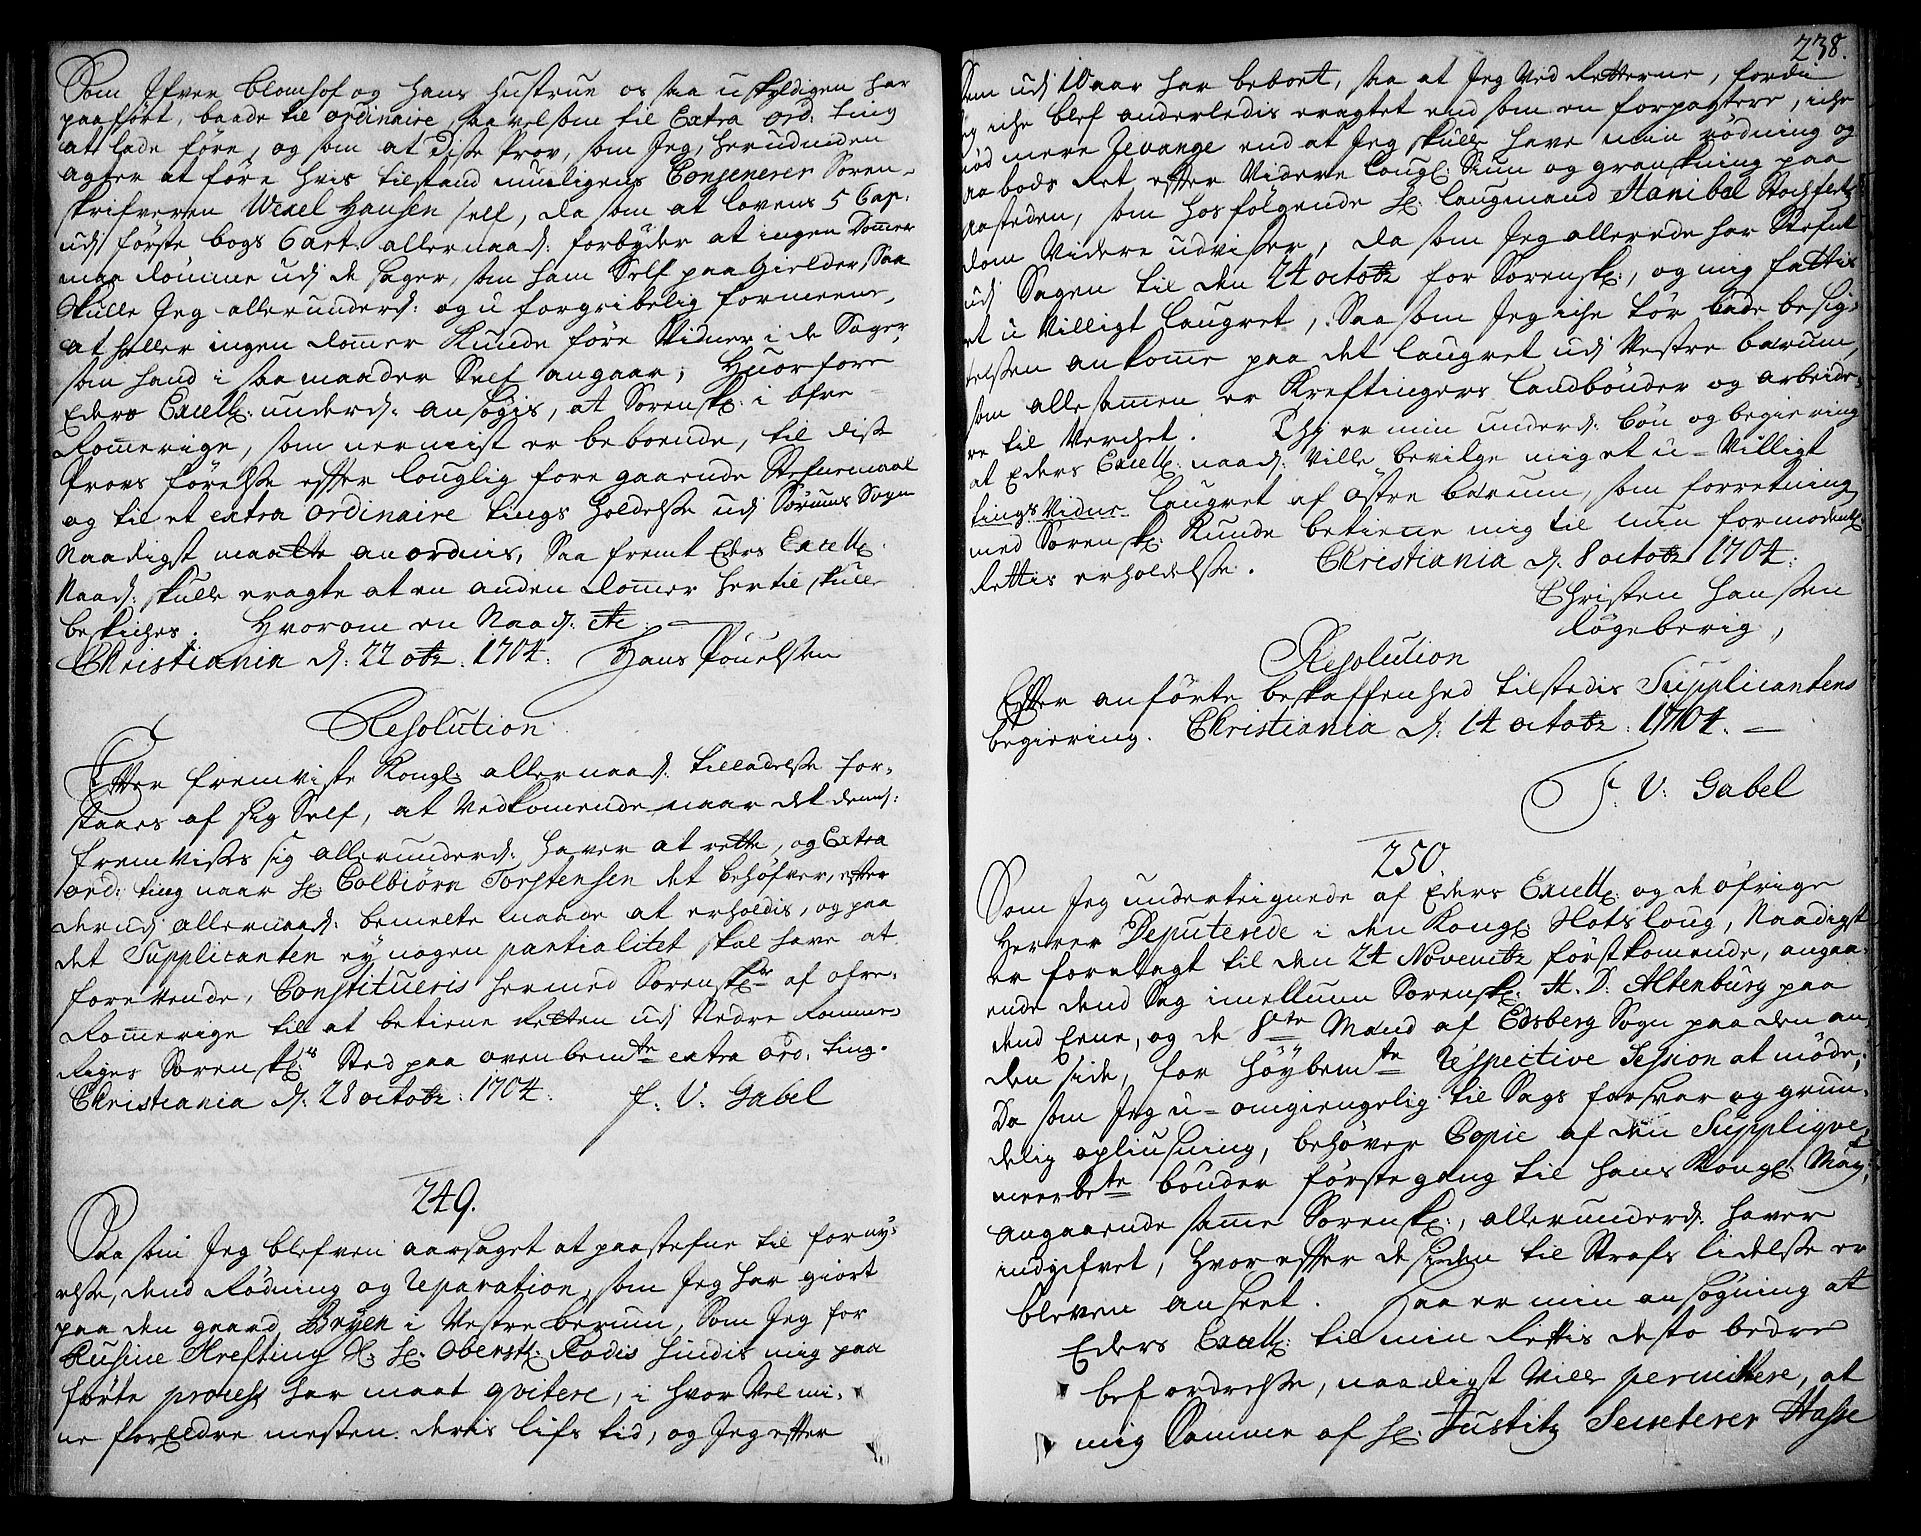 Som Ifver Blomhof og hans Hustrue os saa uskyldigen har
paaført, baade til ordinaire, saavelsom til Extra ord: ting
at lade føre, og som at disse Prov, som Jeg, herudinden
agter at føre hvis tilstand muligens Concenerer Soren-
skrifveren Wexel Hansen self, da som at lovens 5 Cap:
udj første bogs 6 art: allernaad: forbyder at ingen Dommer
maa dømme udj de sager, som ham Self paa Gielder, Saa
Skulle Jeg allerunderd: og uforgribelig formeene,
at heller ingen dommer kunde føre Vidner i de Sager,
som hand i saa maader Self angaar; Hvorfore
Eders Excell: underd: ansøgis, at Sorensk: i Øfre
Romerige, som nermist er beboende, til diße
Provs førelse efter louglig foregaaende Stefnemaal
og til et extra ordinaire tings holdelse udj Sørums Sogn
Naadigst maatte anordnis, Saa fremt Eders Excell:
Naad: skulle eragte at en anden dommer hertil skulle
beskiches. Hvorom en Naad: etc
Christiania d: 22 octbr: 1704: Hans Povelsen
Resolution:
Efter fremviste Kongl: allernaad: tilladelse for-
staaes af sig Self, at Vedkomende naar det dennd:
fremvises sig allerunderd: haver at rette, og Extra
ord: ting naar Hr: Colbiørn Torstensen det behøfver, efter
derudj allernaad: bemelte maade at erholdis, og paa
det Supplicanten ey nogen partialitet skal have at
forevende, Constitueris hermed Sorensk:r af øfre-
Romerige til at betiene Retten udj Nedre Romme-
riges Sorensk:s Sted paa ovenbemte extra ord: ting.
Christiania d: 28 octobr: 1704: F: V: Gabel
249.
Saa som Jeg blefven aarsaget at paastefne til forny-
else, dend Rødning og Reparation, som Jeg har giort
paa den gaard Bryen i Vestre Berum, Som Jeg for
Rusine Krefting Sl: Hr: Oberstl: Rodis hindis mig paa
førte process har maat qvitere, i hvor Vel mi-
ne forældre mesten deris lifs tid, og Jeg efter
238.
Dem udj 10 aar har beboet, saa at Jeg Ved Retterne, fordi
Jeg iche blef anderledis eragtet end som en forpagtere, iche
nød mere Jevange end at Jeg skulle have min rødning og
aabods Ret efter Videre lougl: Siun og granskning paa
aasteden, som hosfølgende Hr: laugmand Hanibal Stochfleths
dom Videre udviser, da som Jeg allerede har Stefnt
udj Sagen til den 24 octobr for Sorensk:, og mig fattis
et u Villigt laugret, Saa som Jeg iche tør lade besig-
telsen ankomme paa det laugret udj Vestre bærum,
som allesamen er Kreftingers landbønder og arbeide-
re til Verchet. Thj er min underd: bøn og begiering
at Eders Excell: naad: Ville bevilge mig et u-Villigt
tings Vidne laugret af østre bærum, som forretning
med Sorensk: kunde betiene mig til min formodentl:
Rettis erholdelse. Christiania d: 8 octobr 1704:
Christen Hansen
Røgeberig,
Resolution
Efter anførte beskaffenhed tilstedis Supplicantens
begiering. Christiania d: 14 octobr: 1704.
F: V: Gabel
250.
Som Jeg underteignede af Eders Excell: og de øfrige
Herrer Deputerede i den Kongl: Slotsloug, Naadigst
er forelagt til den 24 Novembr førstkomende, angaa-
ende dend Sag imellum Sorensk: H. D: Altenburg paa
dend Eene, og de 8te Mænd af Edsberg Sogn paa den an-
den side, for høybemte respective Session at møde,
Da som Jeg u-omgiengelig til Sags forsvar og grun-
delig opliusning, behøver Copie af den Supplique,
meerbete bønder første gang til hans Kongl: May:t
angaaende samme Sorensk:, allerunderd: haver
indgifvet, hvorefter de siden til Straffs lidelse er
bleven anseet. Saa er min ansøgning at
Eders Excell: til min Rettis desto bedre
befordrelse, naadigst Ville permittere, at
mig Samme af Hr: Justitz Secreterer Hasse